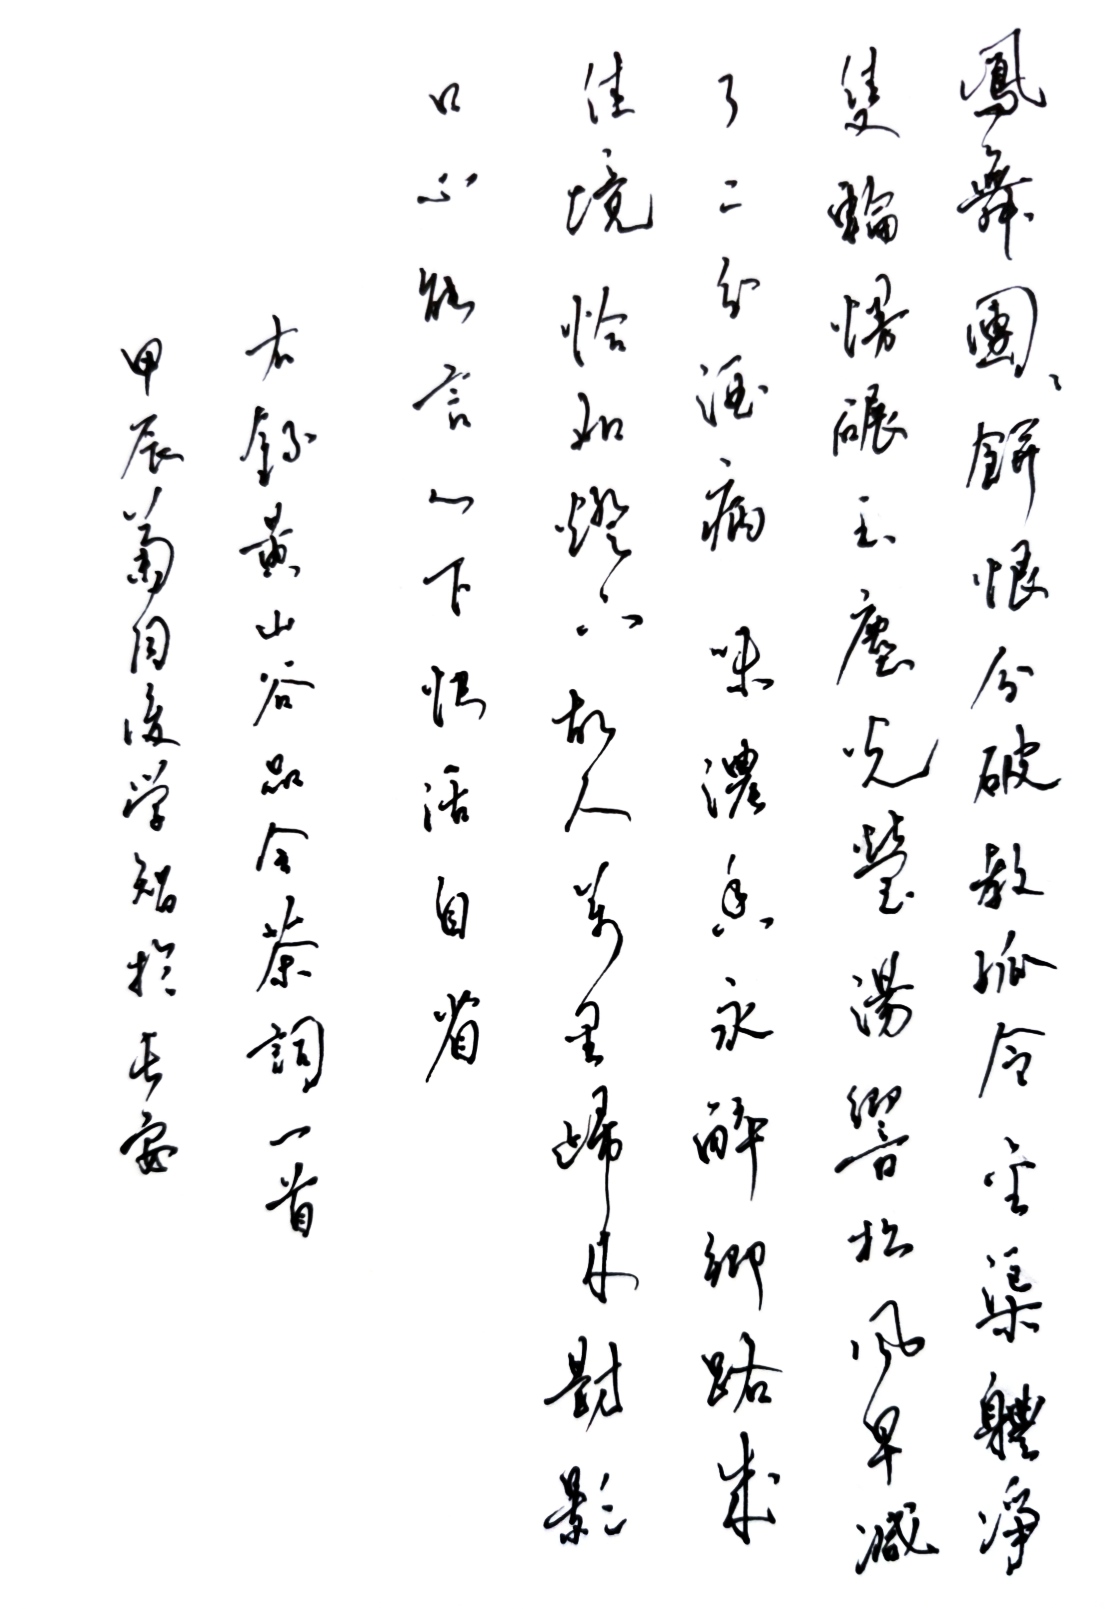 鳳舞團〻餅恨分破教孤令金渠體淨
隻輪慢碾玉塵光瑩湯響松風早減
了二分酒病味濃香永醉鄉路成
佳境恰如燈下故人萬里歸來對影
口不能言心下快活自省
右錄黃山谷品令茶詞一首
甲辰菊月後学智於長安